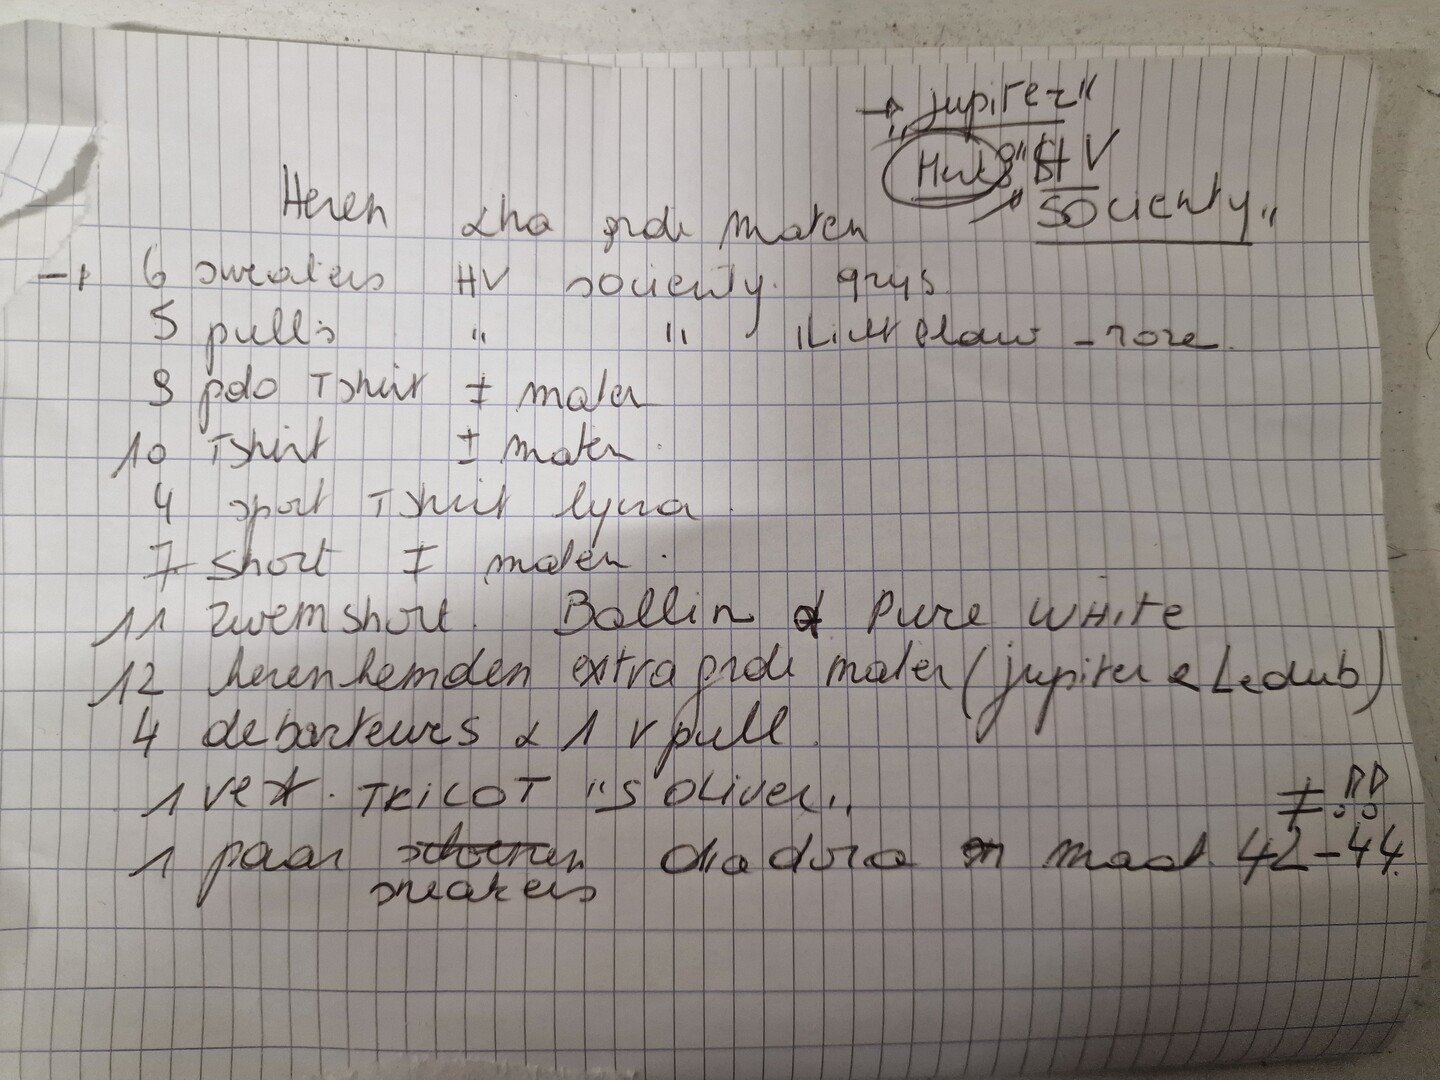 → „jupiter"
HV
"Socienty"
Heren xtra grote maten
→ 6 sweaters HV socienty grys
5 pull's " " licht blauw - roze.
9 polo Tshirt ≠ maten
10 Tshirt ± maten.
4 sport Tshirt lycra
7 short ≠ maten.
11 zwemshort. Ballin & Pure WHite
12 herenhemden extra grote maten (jupiter & Ledub)
4 debardeurs & 1 v pull.
1 vest. TRICOT "S Oliver"
1 paar sneakers diadora maat 42-44.